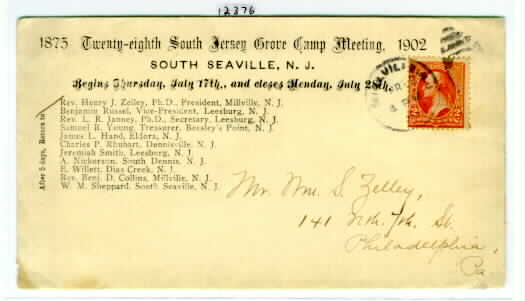 12376
1875 Twenty-eighth South Jersey Grove Camp Meeting, 1902
SOUTH SEAVILLE, N. J.
Begins Thursday, July 17th, and closes Monday, July 28th.
After 5 days, Return to
Rev. Henry J. Zelley, Ph.D., President, Millville, N. J.
Benjamin Russel, Vice-President, Leesburg, N. J.
Rev. L. R. Janney, Ph.D., Secretary, Leesburg, N. J.
Samuel R. Young, Treasurer, Beesley's Point, N. J.
James L. Hand, Eldora, N. J.
Charles P. Rhubart, Dennisville, N. J.
Jeremiah Smith, Leesburg, N. J.
A. Nickerson, South Dennis, N. J.
E. Willett, Dias Creek, N. J.
Rev. Benj. D. Collins, Millville, N. J.
W. M. Sheppard, South Seaville, N. J.
Mr. Wm. S. Zelley,
141 Nth. 7th. St.
Philadelphia,
Pa.